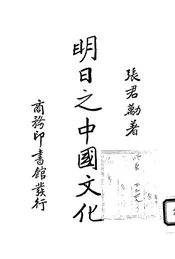 張君勱著
明日之中國文化
商務印書館發行